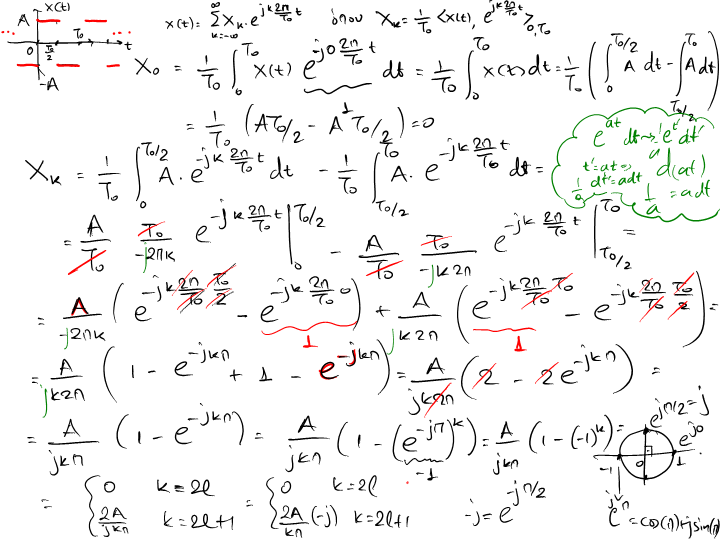 A x(t) x(t) = ∞ Σ k=-∞ X_k · e^{jk 2π/T₀ t} όπου X_k = 1/T₀ <x(t), e^{jk 2π/T₀ t}>_{0,T₀}
... 0 T₀/2 T₀ t ...
-A
X₀ = 1/T₀ ∫_0^{T₀} x(t) e^{-j0 2π/T₀ t} dt = 1/T₀ ∫_0^{T₀} x(t) dt = 1/T₀ ( ∫_0^{T₀/2} A dt - ∫_{T₀/2}^{T₀} A dt )
1
= 1/T₀ (A T₀/2 - A T₀/2) = 0
X_k = 1/T₀ ∫_0^{T₀/2} A · e^{-jk 2π/T₀ t} dt - 1/T₀ ∫_{T₀/2}^{T₀} A · e^{-jk 2π/T₀ t} dt =
e^{at} dt → 1/a e^{t'} dt'
t' = at ⇒ d(at)
1/a dt' = a dt 1/a = a dt
= A/T₀ T₀/-j2πk e^{-jk 2π/T₀ t} |_0^{T₀/2} - A/T₀ T₀/-jk2π e^{-jk 2π/T₀ t} |_{T₀/2}^{T₀} =
= A/-j2πk ( e^{-jk 2π/T₀ T₀/2} - e^{-jk 2π/T₀ 0} ) + A/jk2π ( e^{-jk 2π/T₀ T₀} - e^{-jk 2π/T₀ T₀/2} ) =
1 1
= A/jk2π ( 1 - e^{-jkπ} + 1 - e^{-jkπ} ) = A/jk2π ( 2 - 2e^{-jkπ} ) =
= A/jkπ ( 1 - e^{-jkπ} ) = A/jkπ ( 1 - (e^{-jπ})^k ) = A/jkπ (1 - (-1)^k) =
-1
e^{jπ/2} = j
e^{j0}
-1 0 1
= { 0 k = 2l = { 0 k = 2l
2A/jkπ k = 2l+1 2A/kπ (-j) k = 2l+1 -j = e^{-jπ/2} e^{jπ} = cos(π) + jsin(π)